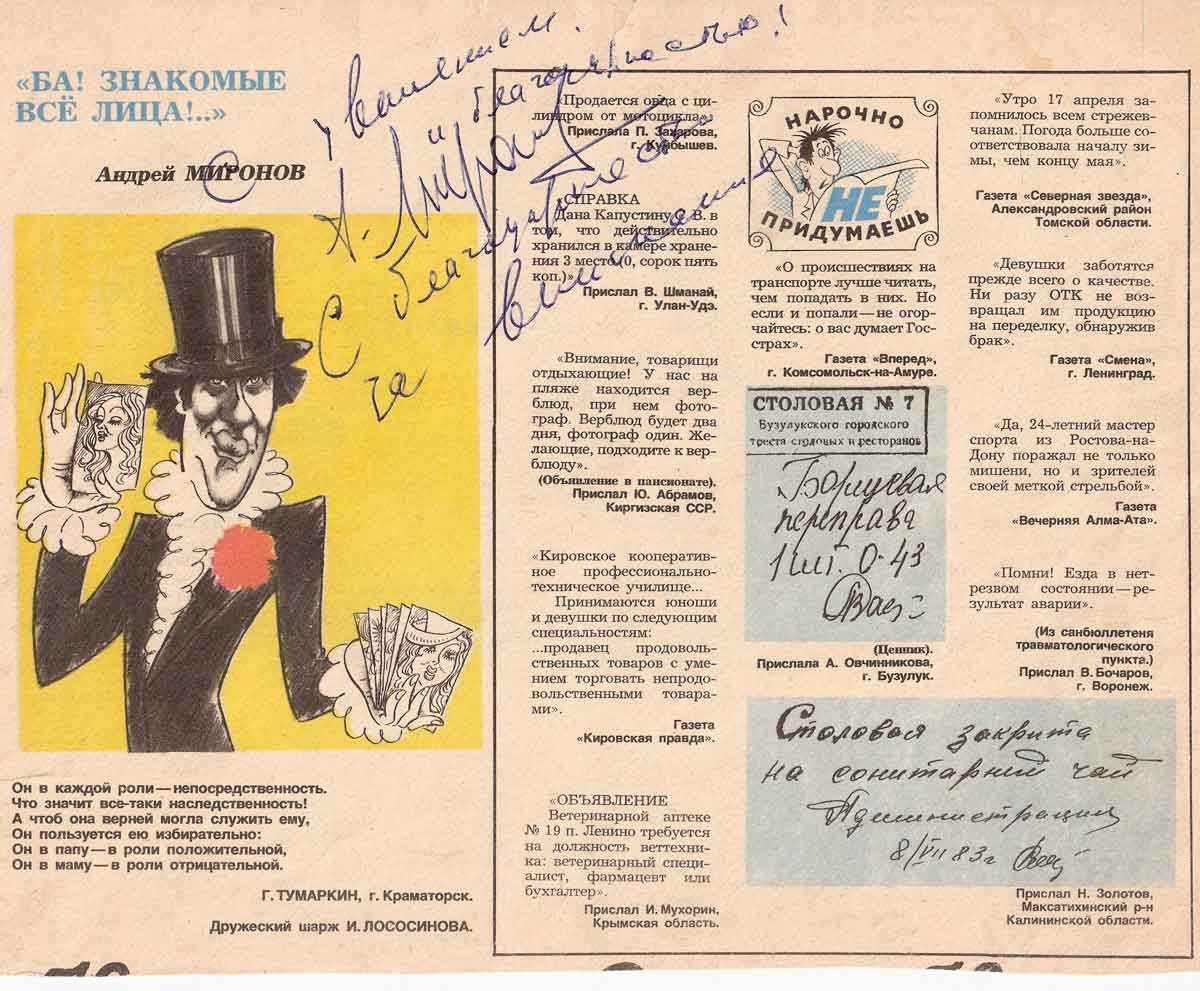 «БА! ЗНАКОМЫЕ
ВСЁ ЛИЦА!..»
Андрей МИРОНОВ
С уважением
и благодарностью!
А. Миронов
С благодарностью
за внимание
Он в каждой роли — непосредственность.
Что значит все-таки наследственность!
А чтоб она верней могла служить ему,
Он пользуется ею избирательно:
Он в папу — в роли положительной,
Он в маму — в роли отрицательной.
Г. ТУМАРКИН, г. Краматорск.
Дружеский шарж И. ЛОСОСИНОВА.
«Продается овца с ци-
линдром от мотоцикла».
Прислала П. Захарова,
г. Куйбышев.
«СПРАВКА
Дана Капустину С. В. в
том, что действительно
хранился в камере хране-
ния 3 место (0, сорок пять
коп.)».
Прислал В. Шманай,
г. Улан-Удэ.
«Внимание, товарищи
отдыхающие! У нас на
пляже находится вер-
блюд, при нем фото-
граф. Верблюд будет два
дня, фотограф один. Же-
лающие, подходите к вер-
блюду».
(Объявление в пансионате).
Прислал Ю. Абрамов,
Киргизская ССР.
«Кировское кооператив-
ное профессионально-
техническое училище...
Принимаются юноши
и девушки по следующим
специальностям:
...продавец продоволь-
ственных товаров с уме-
нием торговать непродо-
вольственными товара-
ми».
Газета
«Кировская правда».
«ОБЪЯВЛЕНИЕ
Ветеринарной аптеке
№ 19 п. Ленино требуется
на должность веттехни-
ка: ветеринарный специ-
алист, фармацевт или
бухгалтер».
Прислал И. Мухорин,
Крымская область.
НАРОЧНО
НЕ
ПРИДУМАЕШЬ
«О происшествиях на
транспорте лучше читать,
чем попадать в них. Но
если и попали — не огор-
чайтесь: о вас думает Гос-
страх».
Газета «Вперед»,
г. Комсомольск-на-Амуре.
СТОЛОВАЯ № 7
Бузулукского городского
треста столовых и ресторанов
Борщевая
переправа
1 шт. 0-43
(Ценник).
Прислала А. Овчинникова,
г. Бузулук.
«Утро 17 апреля за-
помнилось всем стрежев-
чанам. Погода больше со-
ответствовала началу зи-
мы, чем концу мая».
Газета «Северная звезда»,
Александровский район
Томской области.
«Девушки заботятся
прежде всего о качестве.
Ни разу ОТК не воз-
вращал им продукцию
на переделку, обнаружив
брак».
Газета «Смена»,
г. Ленинград.
«Да, 24-летний мастер
спорта из Ростова-на-
Дону поражал не только
мишени, но и зрителей
своей меткой стрельбой».
Газета
«Вечерняя Алма-Ата».
«Помни! Езда в нет-
резвом состоянии — ре-
зультат аварии».
(Из санбюллетеня
травматологического
пункта.)
Прислал В. Бочаров,
г. Воронеж.
Столовая закрита
на сонитарний чай
Администрация
8/VII 83г
Прислал Н. Золотов,
Максатихинский р-н
Калининской области.